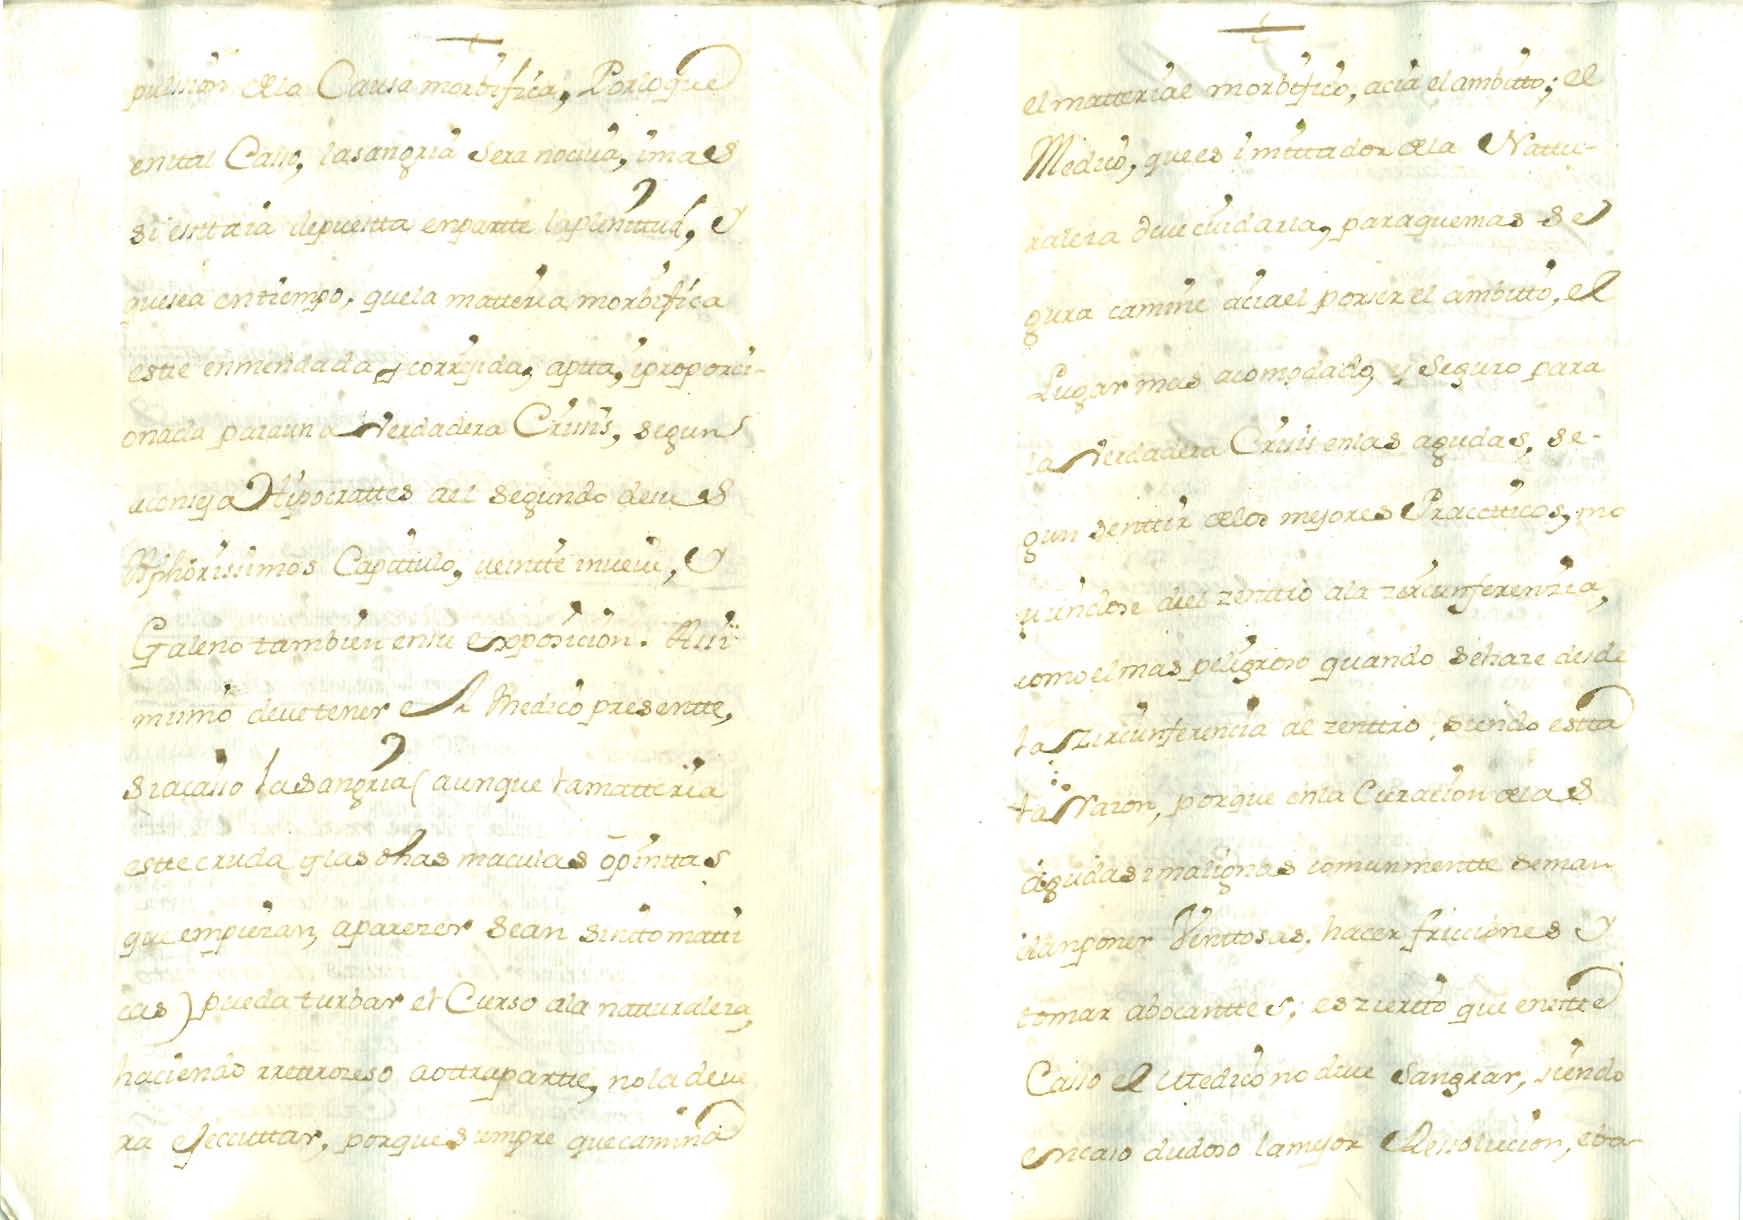 pulsion dela Causa morbifica, Porloque
enttal Casso, lasangria sera nociva, imas
si esttaia depuestta enpartte laplenittud, y
quesea entiempo, quela matteria morbifica
estte enmendada y correjida, aptta, iproporci-
onada parauna Verdadera Crisis, segun
aconseja Hipocrattes ael segundo delos
Aphorissimos Capittulo, veintte inueve, y
Galeno tambien ensu exposicion. Assi
mismo devetener el Medico presentte,
siacasso lasangria (aunque lamatteria
estte cruda ylas dhas maculas o pinttas
que empiezan, aparezer sean sinttomatti
cas) pueda turbar el Curso ala natturaleza,
haciendo rrettrozeso aottrapartte, nola deve
ra ejecuttar, porque siempre quecamina
el matteriae morbifico, acia elambitto; el
Medico, quees imittador dela Nattu-
raleza deve cuidarla, paraquemas se
gura camine aciael porser el ambitto, el
Lugar mas acomodado, y seguro para
la Verdadera Crisis enlas agudas, se-
gun senttir delos mejores Practticos, mo
viendose del zenttro ala zircunferenzia,
como elmas peligroso quando sehaze desde
la zircunferencia al zenttro, siendo estta
la Razon, porque enla Curacion delas
agudas imalignas comunmentte seman
dan poner Venttosas, hacer fricciones y
tomar abocanttes; eszierto que enestte
Casso el Medico no deve sangrar, siendo
encaso dudoso lamejor Ressolucion, elsa-